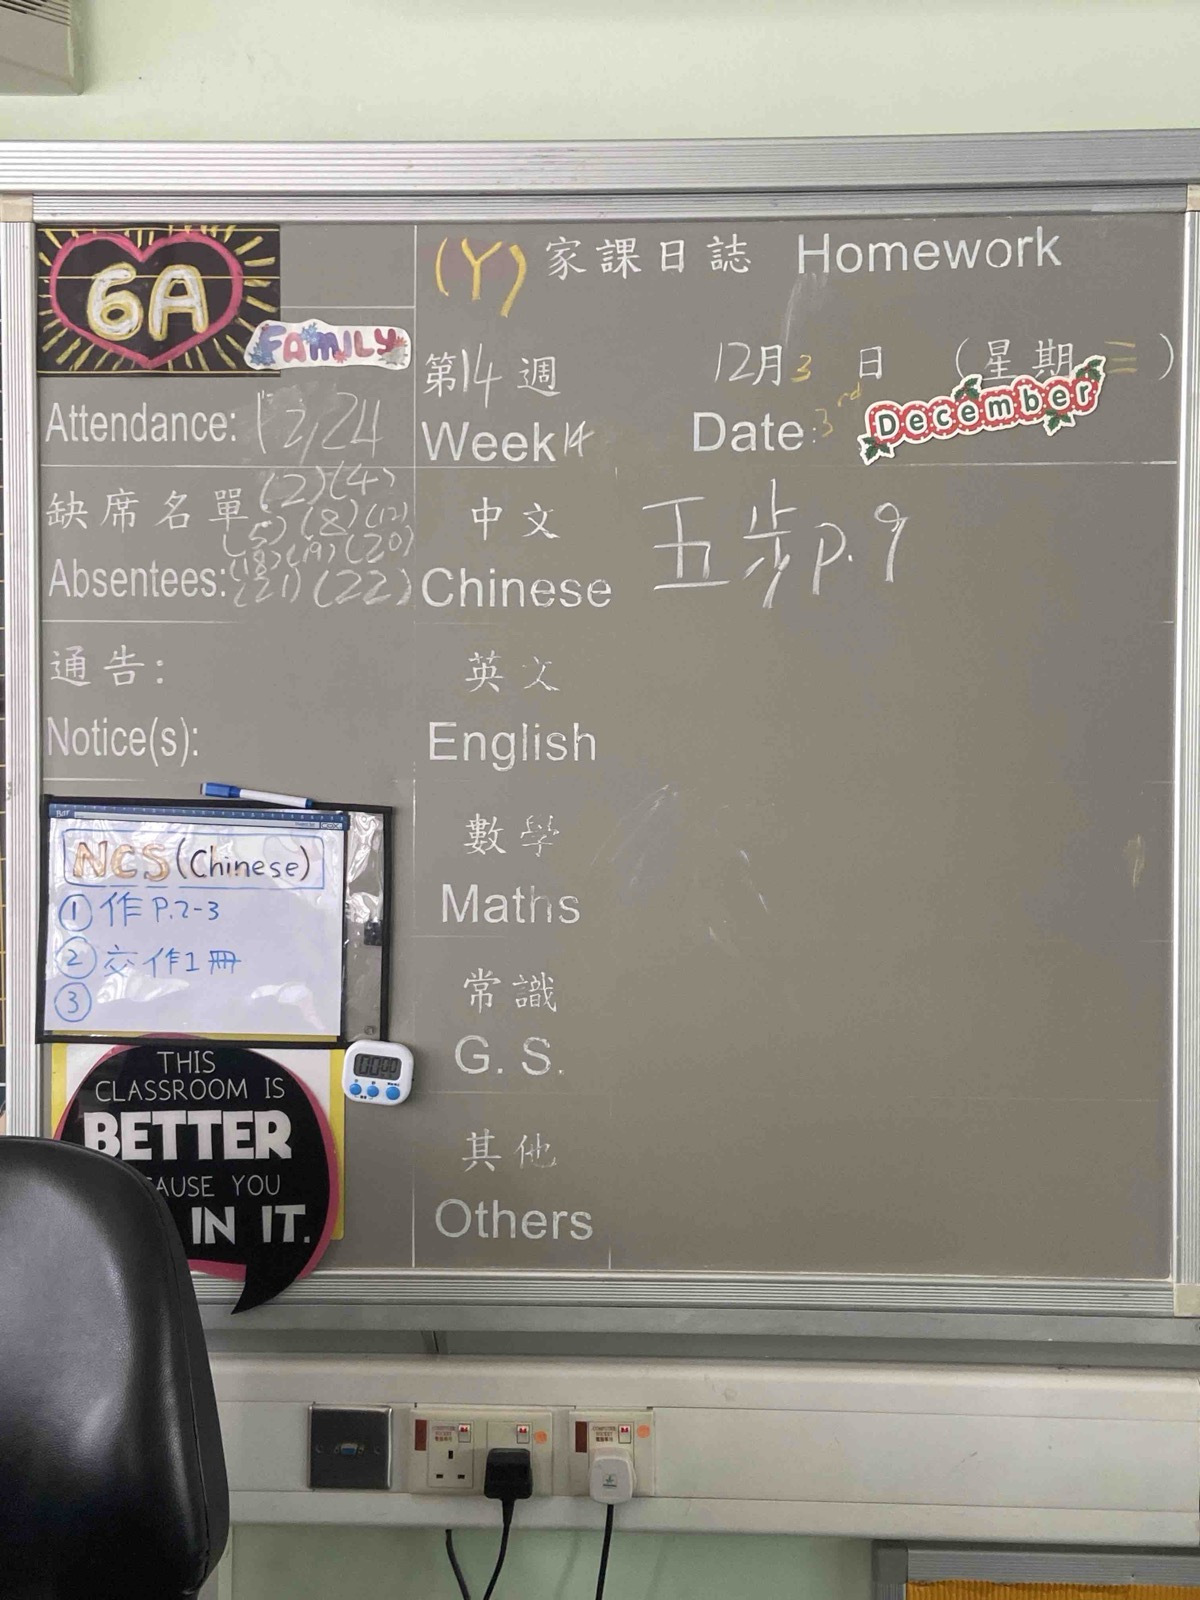 6A
FAMILY
Attendance: 12/24
缺席名單 (2)(4)
(5)(8)(12)
(18)(19)(20)
Absentees: (21)(22)
通告:
Notice(s):
NCS (Chinese)
① 作 P.2-3
② 交作1冊
③
THIS
CLASSROOM IS
BETTER
AUSE YOU
IN IT.
(Y) 家課日誌 Homework
第14週 12月3日 (星期三)
Week 14 Date: 3rd December
中文 五步 p.9
Chinese
英文
English
數學
Maths
常識
G. S.
其他
Others